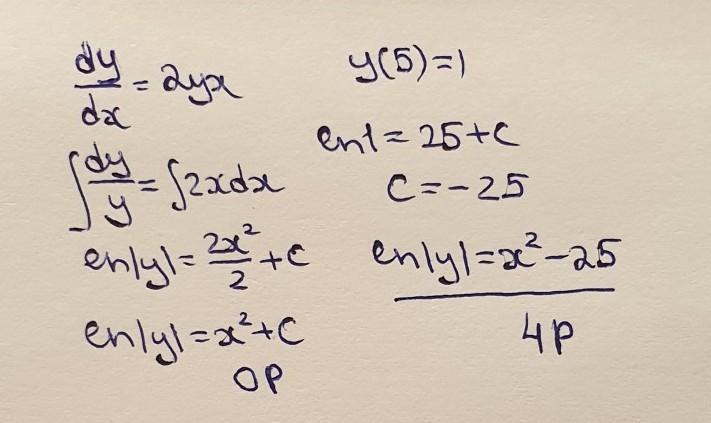 dy/dx = 2yx
∫dy/y = ∫2xdx
ln|y| = 2x²/2 + C
ln|y| = x² + C
OP
y(5)=1
ln1 = 25+C
C = -25
ln|y| = x² - 25
4P